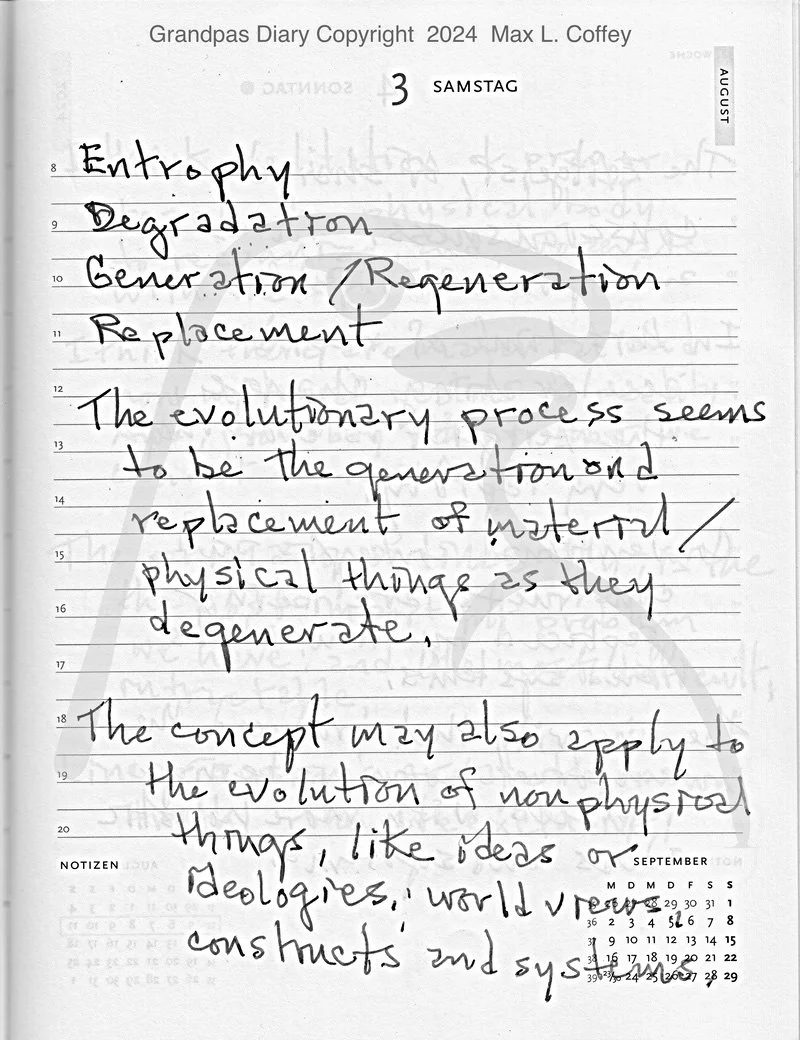 Grandpas Diary Copyright 2024 Max L. Coffey
3 SAMSTAG
AUGUST
8 Entrophy
9 Degradation
10 Generation / Regeneration
11 Replacement
12
The evolutionary process seems
13 to be the generation and
14 replacement of material /
15 physical things as they
16 degenerate.
17
18 The concept may also apply to
19 the evolution of non physical
20 things, like ideas or
NOTIZEN
ideologies, world views
constructs and systems.
SEPTEMBER
M D M D F S S
29 30 31 1
36 2 3 4 5 6 7 8
9 10 11 12 13 14 15
38 16 17 18 19 20 21 22
39 23/30 24 25 26 27 28 29